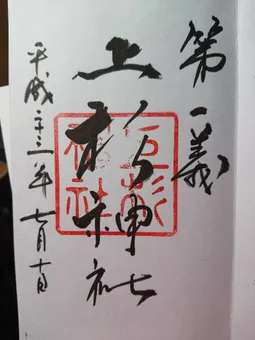 第一義
上杉神社
平成二十三年七月十日
上杉神社